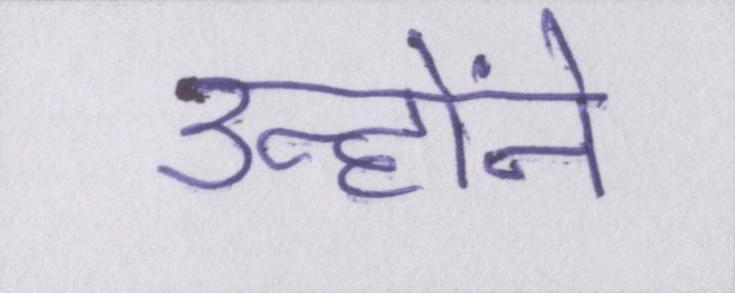 उन्होंने